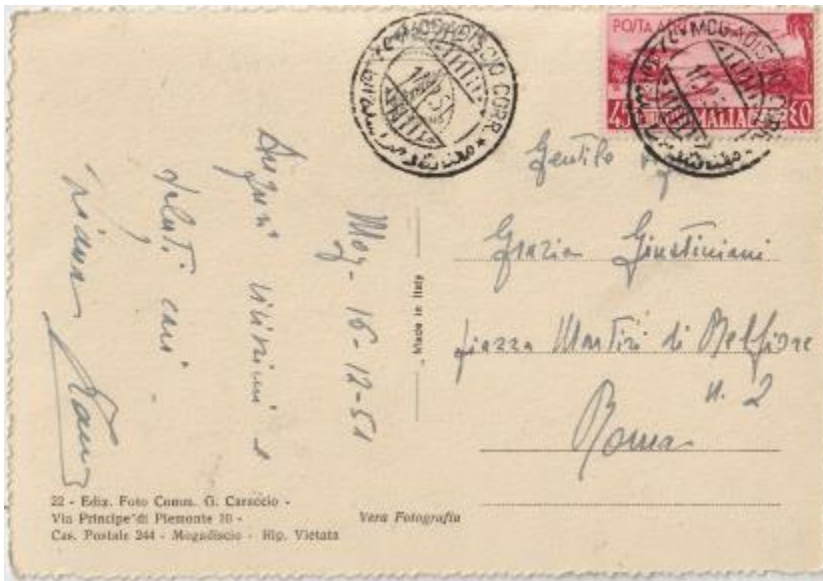 MOGADISCIO CORR.
POSTA AEREA
MOGADISCIO CORR.
45
ITALIA
80
Mog - 16-12-51
Auguri vivissimi e
saluti cari
Gentile
Grazia Giustiniani
piazza Martiri di Belfiore
n. 2
Roma
Made in Italy
22 - Ediz. Foto Comm. G. Caraccio -
Via Principe di Piemonte 20 -
Cas. Postale 244 - Mogadiscio - Rip. Vietata
Vera Fotografia